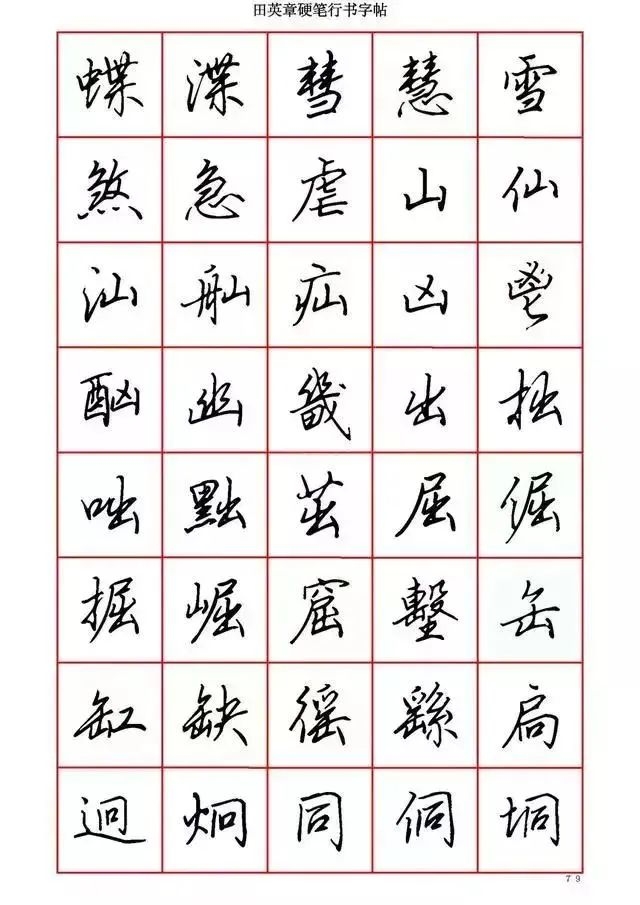 田英章硬笔行书字帖
蝶 渫 彗 慧 雪
煞 急 虐 山 仙
汕 舢 疝 凶 鬯
酗 幽 畿 出 拙
咄 黜 茁 屈 倔
掘 崛 窟 缶
缸 缺 徭 繇 扃
迥 炯 同 侗 垌
79